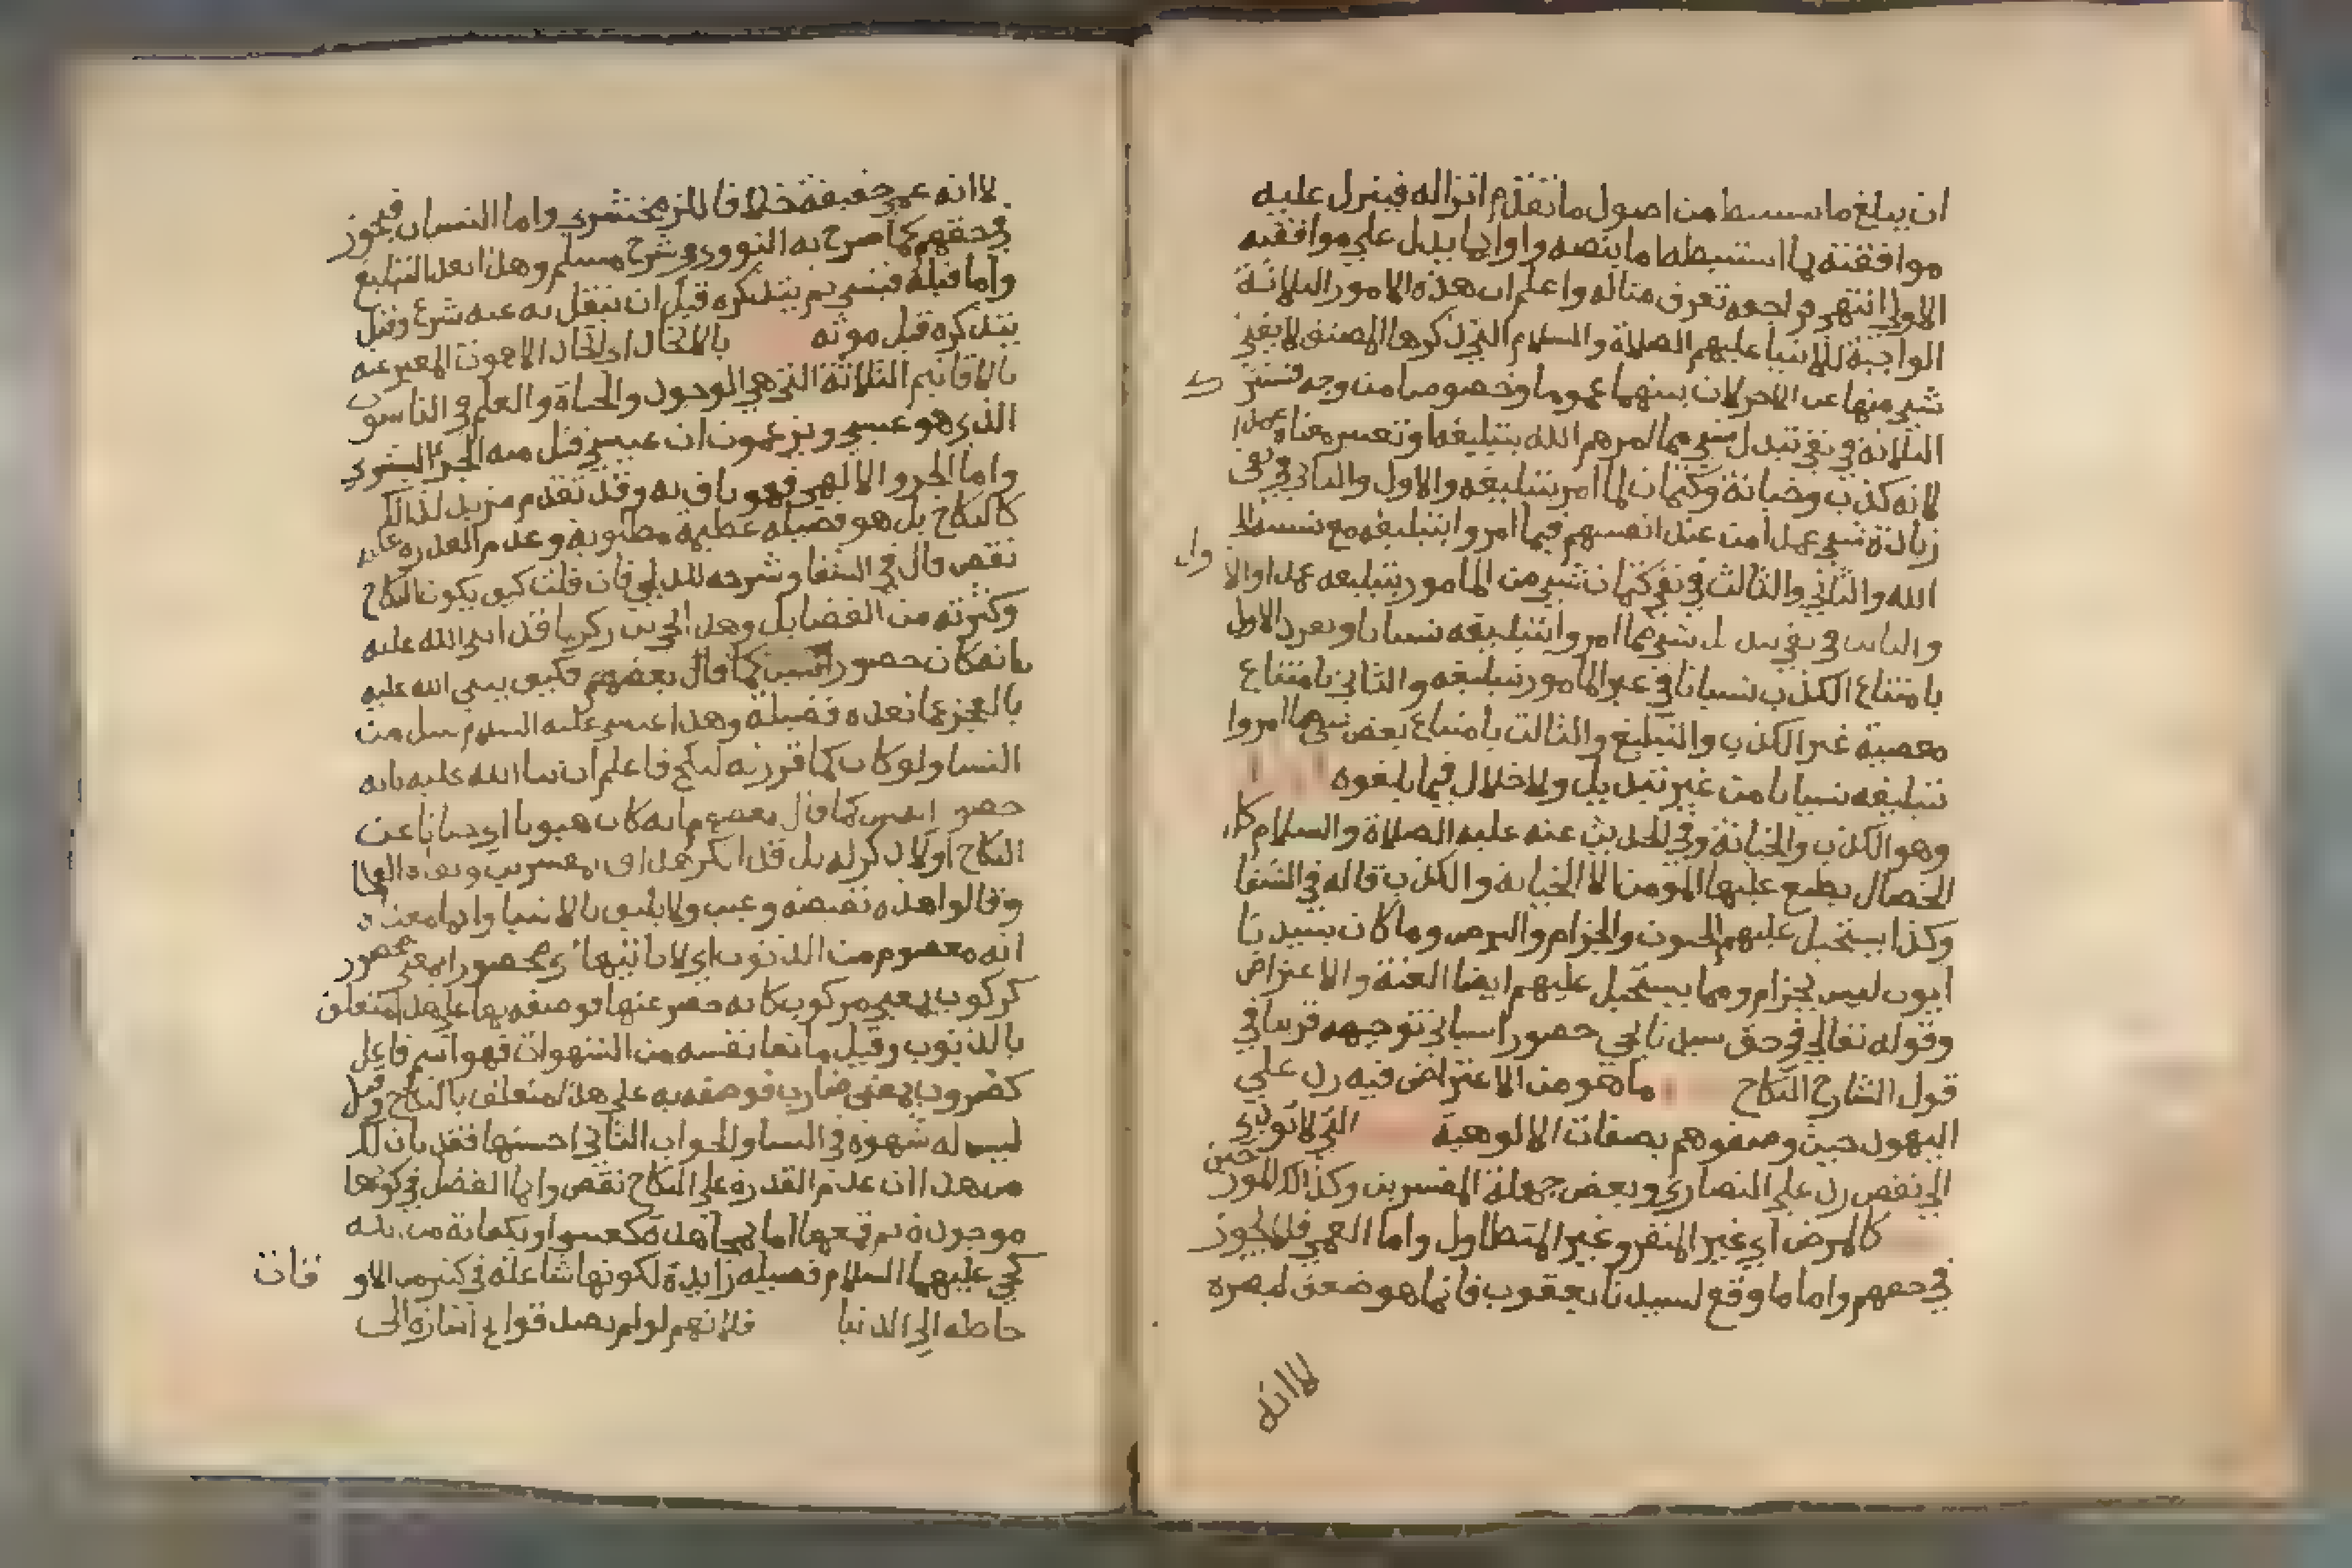 ان يبلغ ما من اصول ما تقدم انزاله فينزل عليه
موافقته لما استنبطه ما ينصه واولها يدل علي موافقته
الاولي انتهي فراجعه تعرف مثاله واعلم ان هذه الامور الثلاثة
الواجبة للانبيا عليهم الصلاة والسلام التي ذكرها المصنف لا يغني
شي منها عن الاخر لان بينهما عموما وخصوصا من وجه فتشترك
الثلاثة في نفي تبديل شي مما امرهم الله بتبليغه وتغيير معناه عمدا
لانه كذب وخيانة وكتمان لما امر بتبليغه والاول والثاني في نفي
زيادة شي عمدا من عند انفسهم فيما امروا بتبليغه مع
الله والثاني والثالث في نفي كتمان شي من المامور بتبليغه عمدا والاول
والثالث في نفي تبديل شي مما امروا بتبليغه نسيانا وينفرد الاول
بامتناع الكذب نسيانا في غير المامور بتبليغه والثاني بامتناع
معصية غير الكذب والتبليغ والثالث بامتناع بعض شي مما امروا
بتبليغه نسيانا من غير تبديل ولا اخلال فيما بلغوه
وهو الكذب والخيانة وفي الحديث عنه عليه الصلاة والسلام كل
الخصال يطبع عليها المومن الا الخيانة والكذب قاله في الشفا
وكذا يستحيل عليهم الجنون والجزام والبرص وما كان بسيدنا
ايوب ليس بجزام ومما يستحيل عليهم ايضا العنة والاعتراض
وقوله تعالي في حق سيدنا يحي حصورا سياتي توجيهه قريبا في
قول الشارح النكاح ما هو من الاعتراض فيه رد علي
اليهود حين وصفوهم بصفات الالوهية التي لا تودي
الي نقص رد علي النصاري وبعض جهلة المفسرين وكذا المورخين
كالمرض اي غير المنفر وغير المتطاول واما العمي فلا يجوز
في حقهم واما ما وقع لسيدنا يعقوب فانما هو ضعف لبصره
لا انه
لا انه عمي حقيقة خلافا للزمخشري واما النسيان فيجوز
في حقهم كما صرح به النووي في شرح مسلم وهذا بعد التبليغ
واما قبله فينسي ثم يتذكره قبل ان ينقل به عنه شرع وقبل
يتذكره قبل موته بالاتحاد اي اتحاد اللاهوت المعبر عنه
بالاقانيم الثلاثة التي هي الوجود والحياة والعلم في الناسوت
الذي هو عيسي ويزعمون ان عيسي قتل منه الجزء البشري
واما الجزو الالهي فهو باق به وقد تقدم مزيد لذلك
كالنكاح بل هو فضيله عظيمة مطلوبة وعدم القدرة عليه
نقص قال في الشفا وشرحه للدلجي فان قلت كيف يكون النكاح
وكثرته من الفضايل وهذا يحي بن زكريا قد اثني الله عليه
بانه كان حصورا كما قال بعضهم فكيف يثني الله عليه
بالعجز عما تعده فضيلة وهذا عيسي عليه السلام تبتل من
النسا ولو كان كما قررته لنكح فاعلم ان ثنا الله عليه بانه
حصور ليس كما قال بعضهم انه كان هيوبا اي جبانا عن
النكاح او لا ذكر له بل قد انكر هذا المفسرين ونقاد العلما
وقالوا هذه نقيصة وعيب ولا يليق بالانبيا وانما معناه
انه معصوم من الذنوب اي لا ياتيها اي محصورا بمعني محصور
كركوب بمعني مركوب كانه حصر عنها فوصفه بها علي هذا متعلق
بالذنوب وقيل مانعا نفسه من الشهوات فهو اسم فاعل
كضروب بمعني ضارب فوصفه به علي هذا متعلق بالنكاح وقيل
ليس له شهوة في النسا والجواب الثاني احسنها فقد بان لك
من هذا ان عدم القدرة علي النكاح نقص وانما الفضل في كونها
موجودة ثم قمعها اما بمجاهدة كعيسي او بكفاية من الله
كيحي عليهما السلام فضيله زايدة لكونها شاغلة في كثير من الاوقات
حاطه الي الدنيا فلانهم لو لم يصدقوا اي اشارة الي